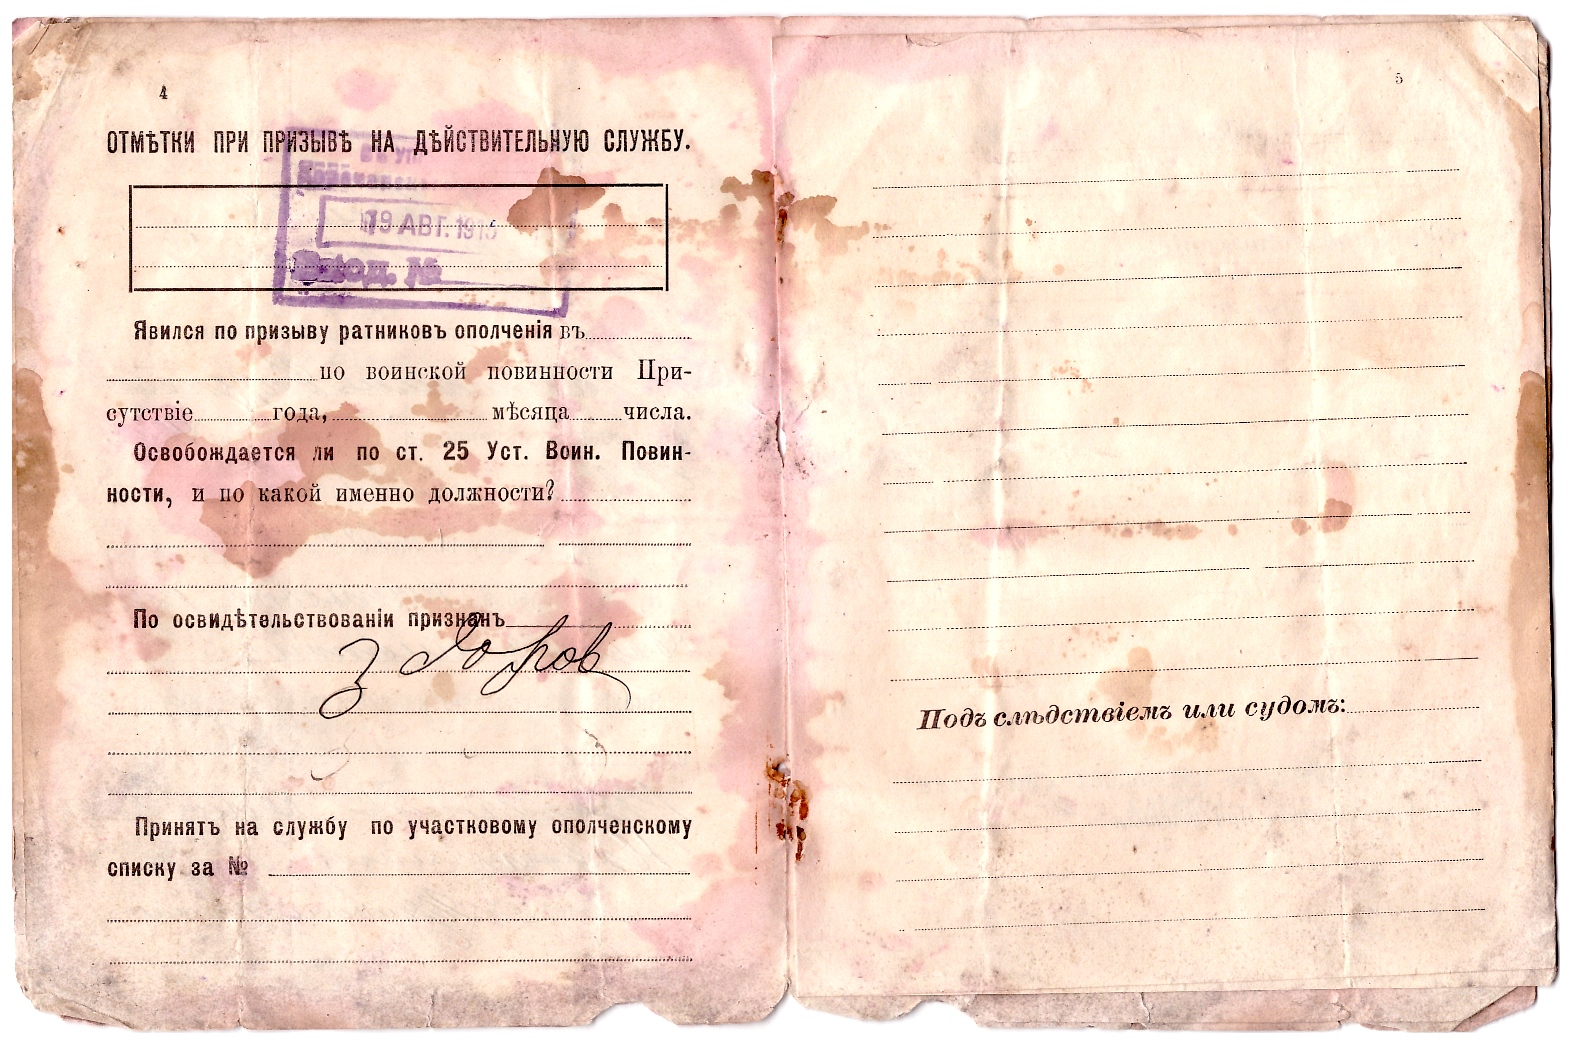 4
ОТМѢТКИ ПРИ ПРИЗЫВѢ НА ДѢЙСТВИТЕЛЬНУЮ СЛУЖБУ.
19 АВГ. 1915
Вход. №
Явился по призыву ратниковъ ополченія въ
по воинской повинности При-
сутствіе года, мѣсяца числа.
Освобождается ли по ст. 25 Уст. Воин. Повин-
ности, и по какой именно должности?
По освидѣтельствованіи признанъ
здоров
Принятъ на службу по участковому ополченскому
списку за №
5
Подъ слѣдствіемъ или судомъ: